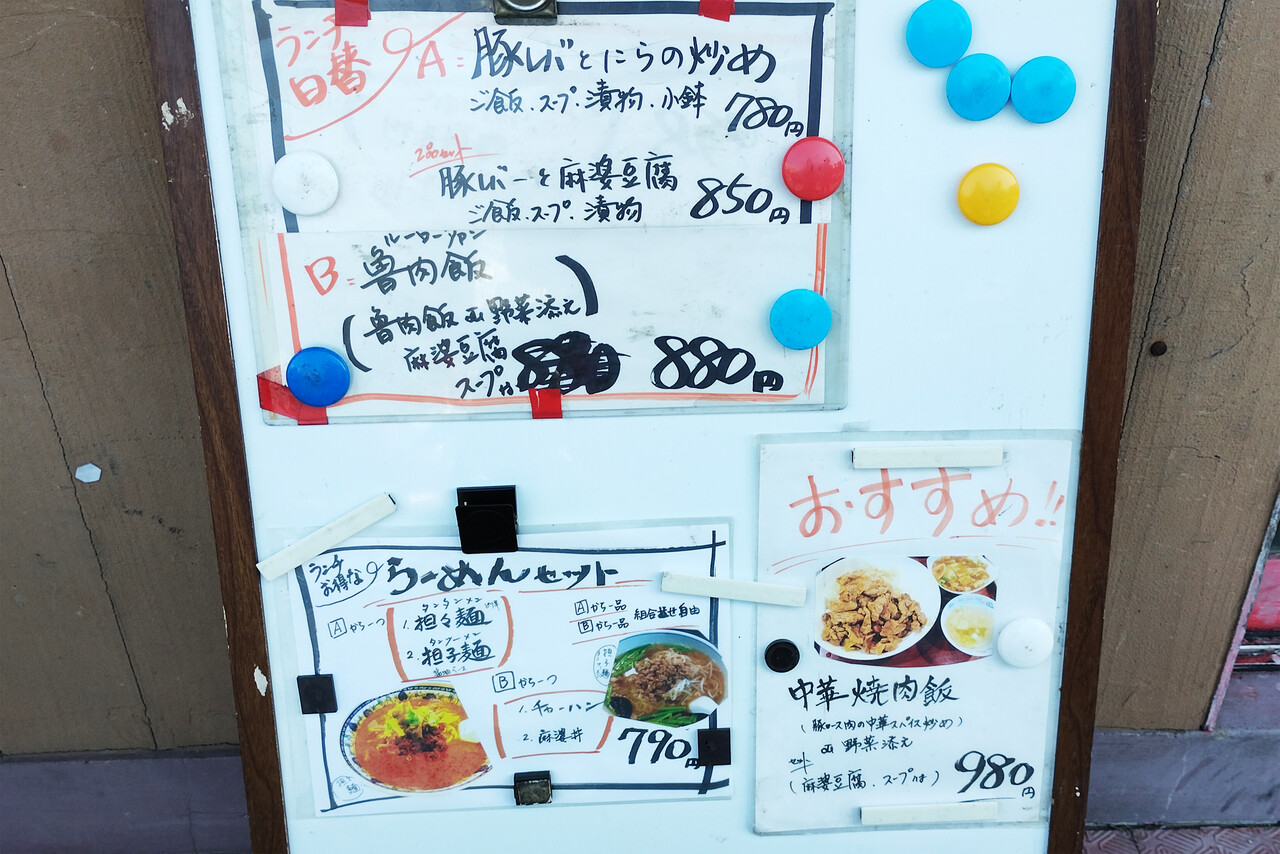 ランチ
日替
A = 豚レバとにらの炒め
ご飯.スープ.漬物.小鉢
780円
豚レバーと麻婆豆腐
ご飯.スープ.漬物
850円
ルーローファン
B = 魯肉飯
(魯肉飯 野菜添え)
麻婆豆腐
スープ付
880円
おすすめ!!
中華焼肉飯
(豚ロース肉の中華スパイス炒め)
野菜添え
セット
(麻婆豆腐、スープ付)
980円
ランチ
お得な
らーめんセット
Aから一つ
タンタンメン
1. 担々麺
タンツーメン
2. 担子麺
Aから一品
Bから一品
組合せ自由
Bから一つ
1. チャーハン
2. 麻婆丼
790円